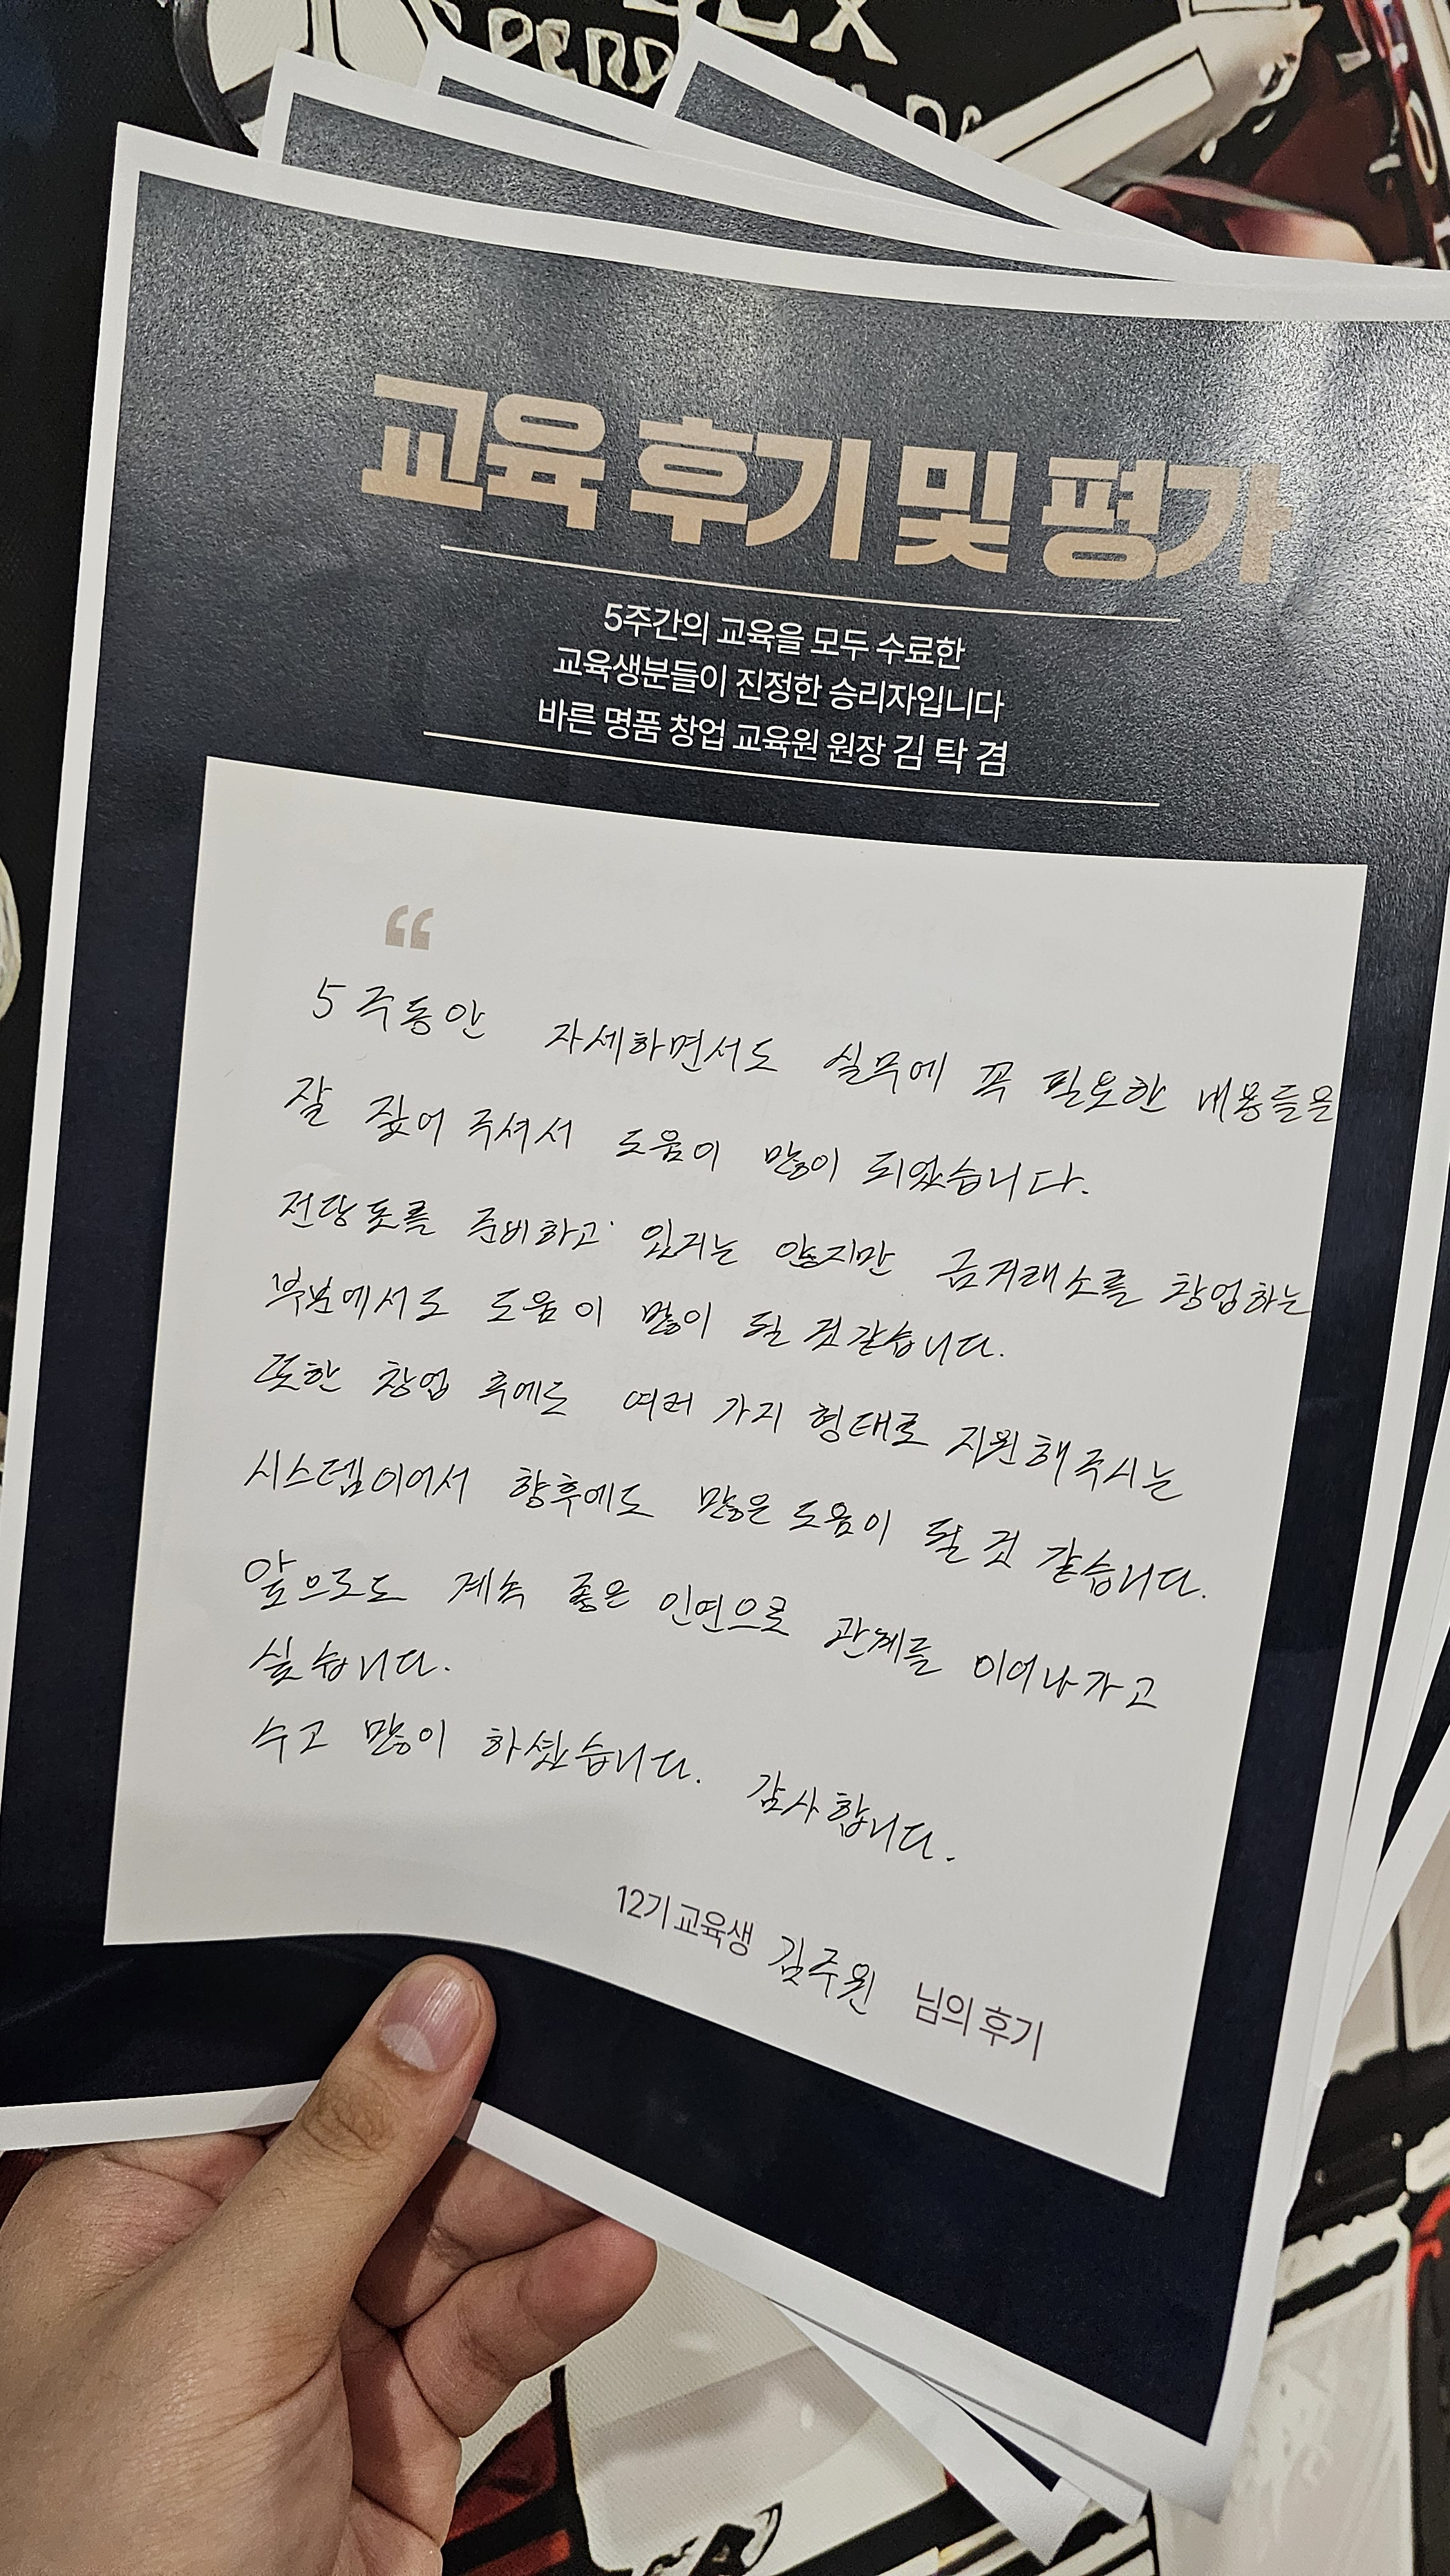 교육 후기 및 평가
5주간의 교육을 모두 수료한
교육생분들이 진정한 승리자입니다
바른 명품 창업 교육원 원장 김 탁 겸
“
5주동안 자세하면서도 실무에 꼭 필요한 내용들을
잘 짚어 주셔서 도움이 많이 되었습니다.
전당포를 준비하고 있지는 않지만 금거래소를 창업하는
부분에서도 도움이 많이 될 것 같습니다.
또한 창업 후에도 여러 가지 형태로 지원해주시는
시스템이어서 향후에도 많은 도움이 될 것 같습니다.
앞으로도 계속 좋은 인연으로 관계를 이어나가고
싶습니다.
수고 많이 하셨습니다. 감사합니다.
12기 교육생 김주원 님의 후기